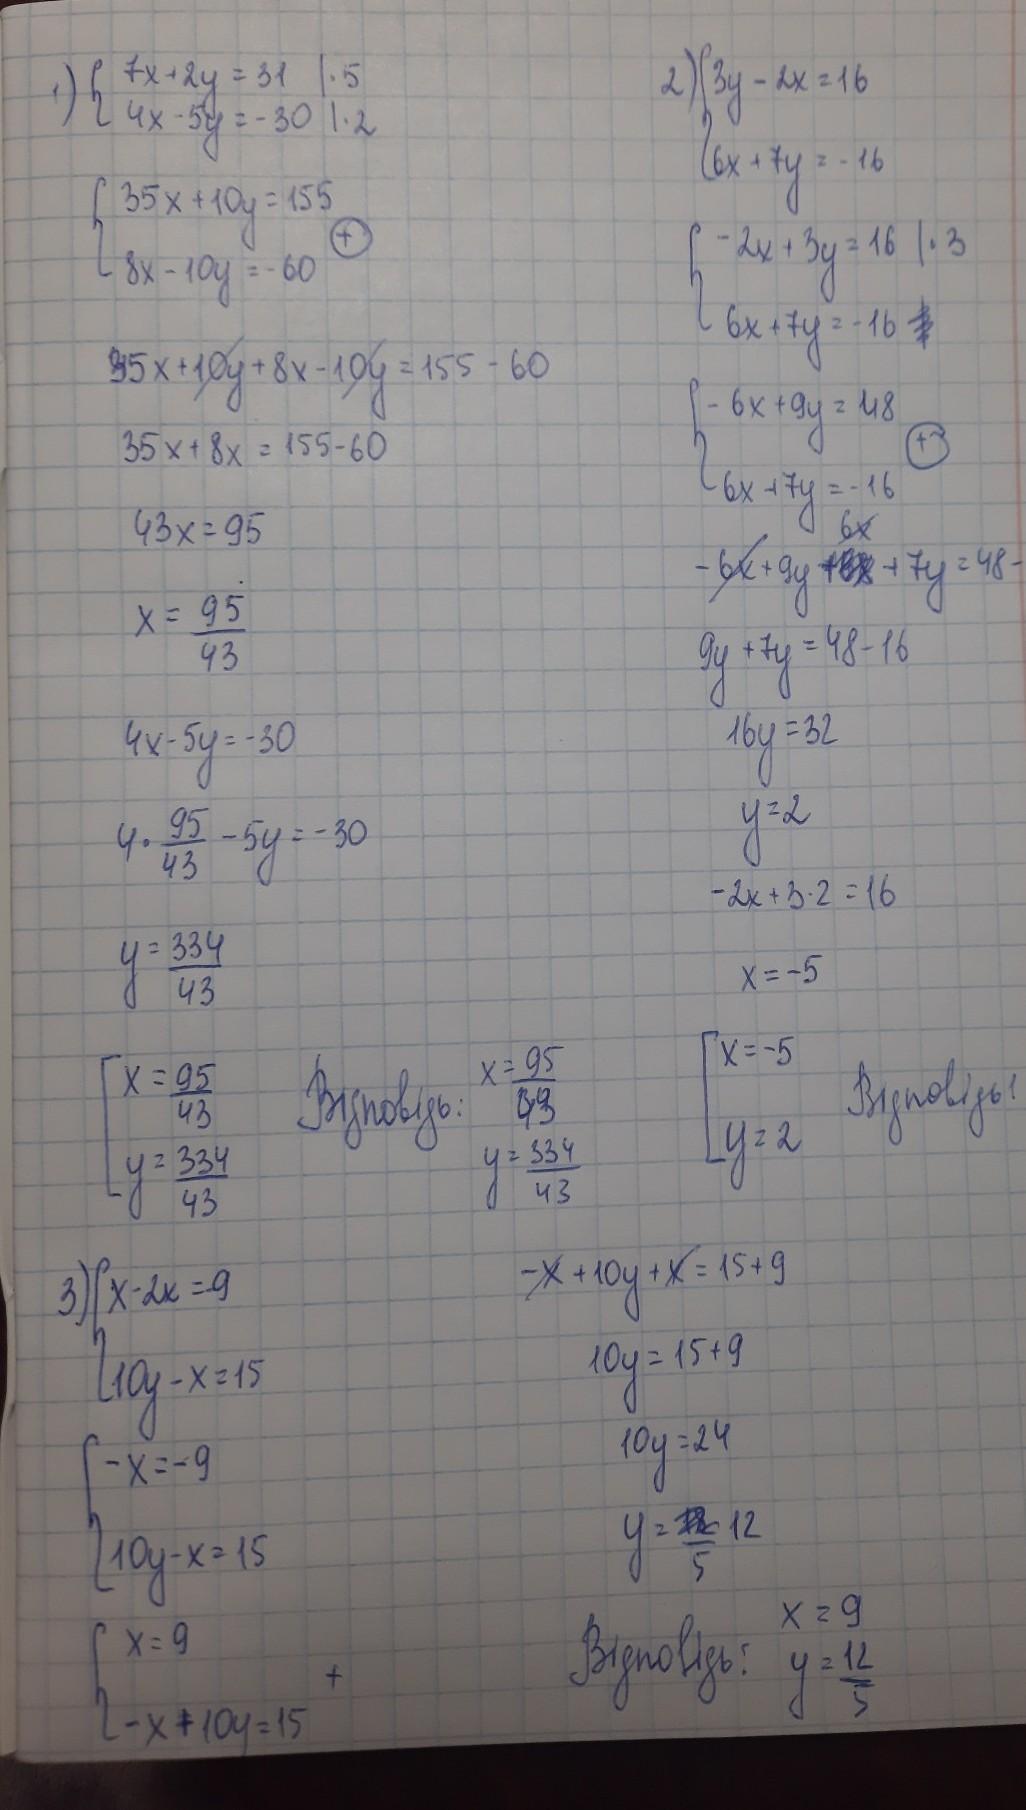 1) { 7x+2y=31 |·5
4x-5y=-30 |·2
{ 35x+10y=155
8x-10y=-60
+
35x+10y+8x-10y=155-60
35x+8x=155-60
43x=95
x=95/43
4x-5y=-30
4·95/43-5y=-30
y=334/43
[ x=95/43
y=334/43
Відповідь: x=95/43
y=334/43
2) { 3y-2x=16
6x+7y=-16
{ -2x+3y=16 |·3
6x+7y=-16
{ -6x+9y=48
6x+7y=-16
+
6x
-6x+9y +7y=48-
9y+7y=48-16
16y=32
y=2
-2x+3·2=16
x=-5
[ x=-5
y=2
Відповідь:
3) { x-2x=-9
10y-x=15
{ -x=-9
10y-x=15
{ x=9
-x+10y=15
+
-x+10y+x=15+9
10y=15+9
10y=24
y=12/5
Відповідь: x=9
y=12/5